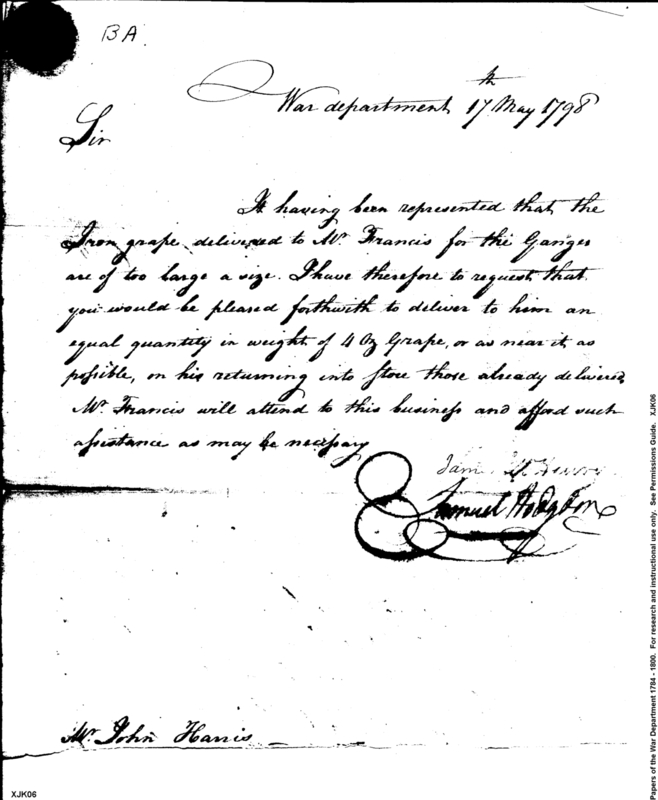 BA
War department 17th May 1798
Sir
It having been represented that the
Iron grape delivered to Mr Francis for the Ganges
are of too large a size. I have therefore to request that
you would be pleased forthwith to deliver to him an
equal quantity in weight of 4 Oz Grape, or as near it as
possible, on his returning into Store those already delivered
Mr Francis will attend to this business and afford such
assistance as may be necessary
Samuel Hodgdon
Mr John Harris
XJK06
Papers of the War Department 1784 - 1800. For research and instructional use only. See Permissions Guide. XJK06